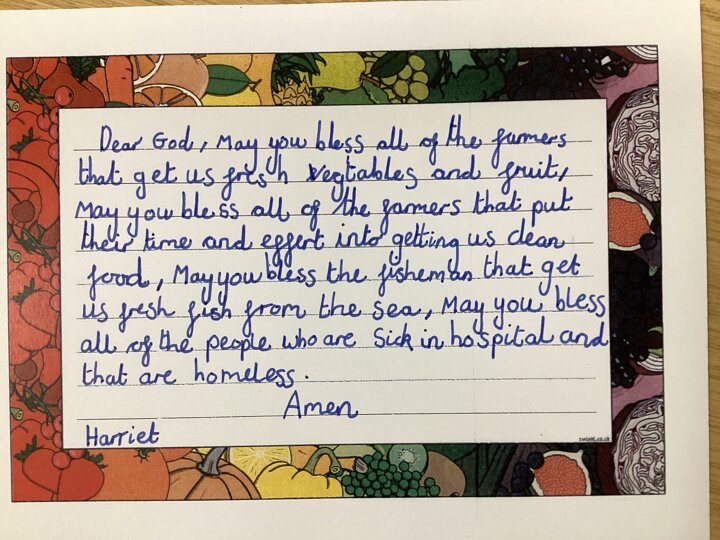 Dear God, May you bless all of the farmers
that get us fresh vegtables and fruit,
May you bless all of the farmers that put
their time and effert into getting us clean
food, May you bless the fisheman that get
us fresh fish from the sea, May you bless
all of the people who are Sick in hospital and
that are homeless.
Amen
Harriet
twinkl.co.uk